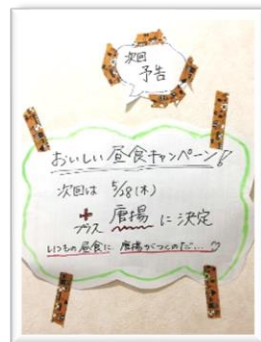 次回
予告
おいしい昼食キャンペーン!
次回は 5/28(木)
+
プラス 唐揚 に決定
いつもの昼食に 唐揚がつくのだ…♡